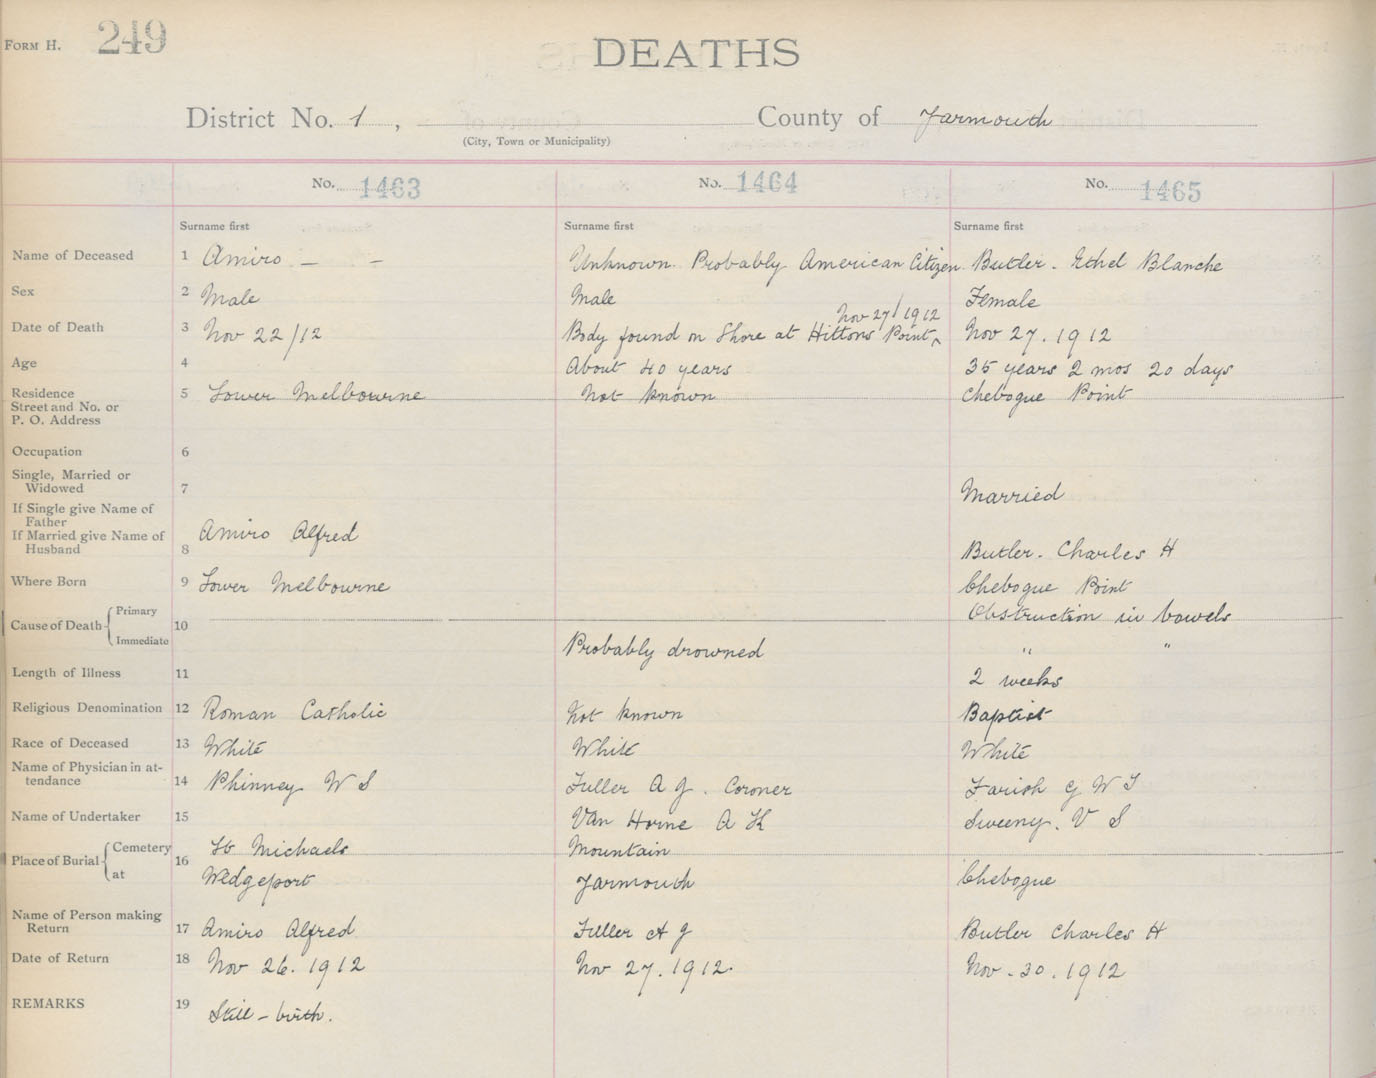 FORM H. 249
DEATHS
District No. 1, County of Yarmouth
(City, Town or Municipality)
No. 1463 No. 1464 No. 1465
Surname first Surname first Surname first
Name of Deceased 1 Amiro — — Unknown. Probably American Citizen Butler. Ethel Blanche
Sex 2 Male Male Female
Nov 27/1912
Date of Death 3 Nov 22/12 Body found on Shore at Hiltons Point ^ Nov 27. 1912
Age 4 About 40 years 35 years 2 mos 20 days
Residence
Street and No. or
P. O. Address
5 Lower Melbourne Not known Chebogue Point
Occupation 6
Single, Married or
Widowed 7 Married
If Single give Name of
Father
If Married give Name of
Husband
8 Amiro Alfred Butler. Charles H
Where Born 9 Lower Melbourne Chebogue Point
Cause of Death Primary 10 Obstruction in bowels
Immediate Probably drowned " "
Length of Illness 11 2 weeks
Religious Denomination 12 Roman Catholic Not known Baptist
Race of Deceased 13 White White White
Name of Physician in at-
tendance 14 Phinney W S Fuller A J. Coroner Farish G W T
Name of Undertaker 15 Van Horne A K Sweeny. V S
Place of Burial Cemetery 16 St Michaels Mountain
at Wedgeport Yarmouth Chebogue
Name of Person making
Return 17 Amiro Alfred Fuller A J Butler Charles H
Date of Return 18 Nov 26. 1912 Nov 27. 1912. Nov. 30. 1912
REMARKS 19 Still-birth.